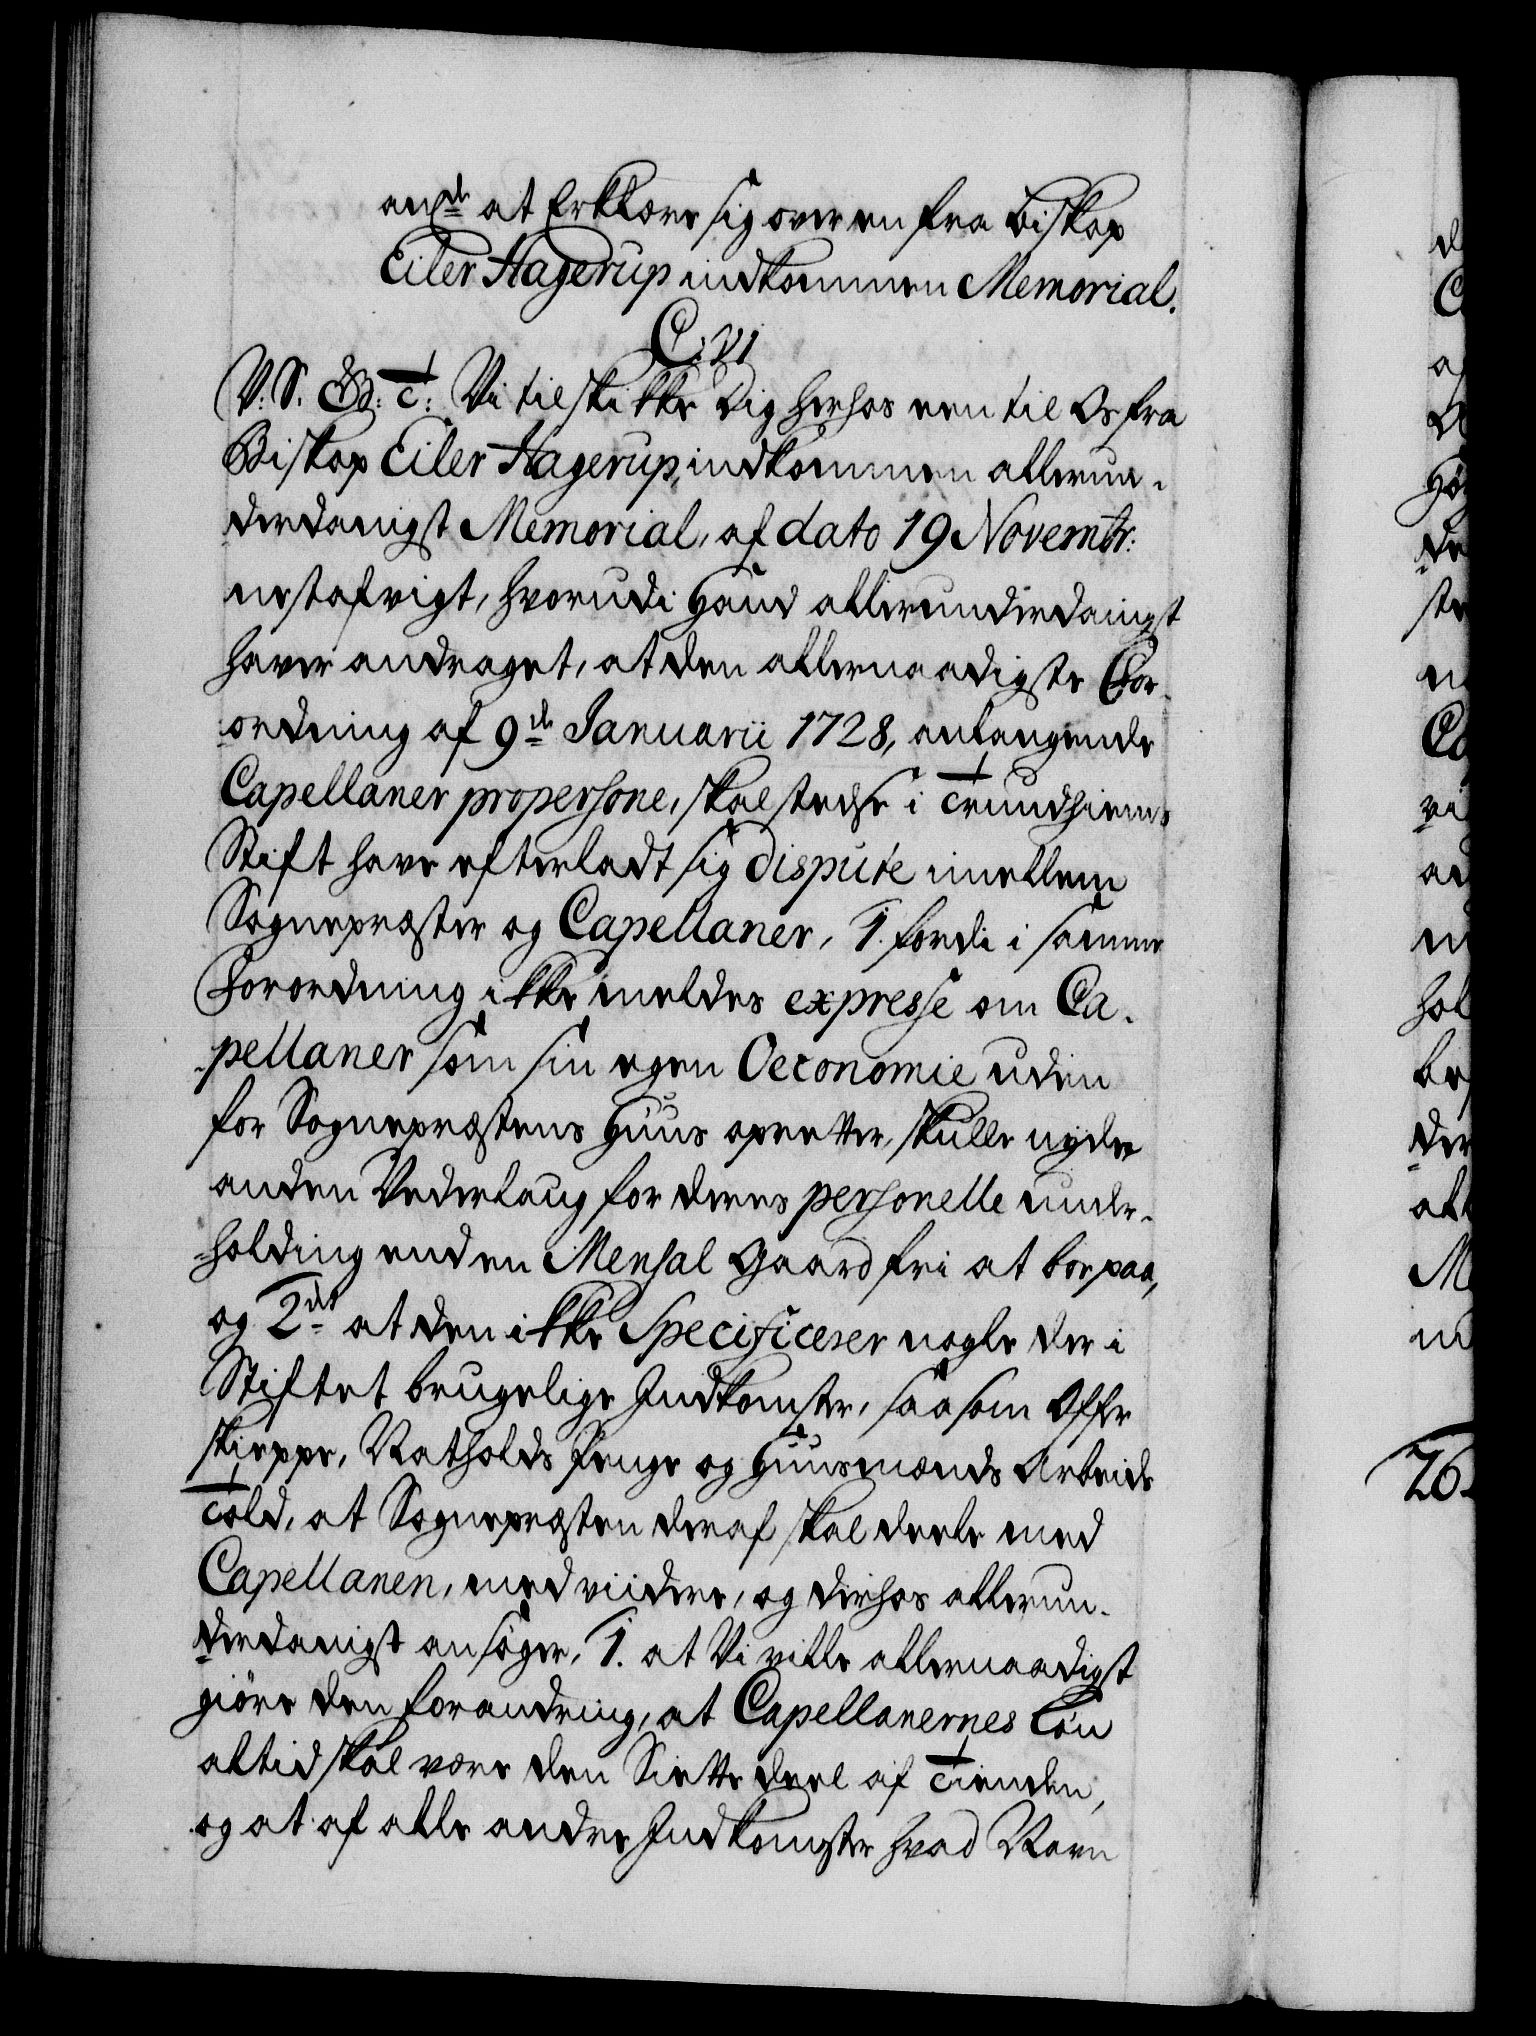 at Erklære sig over en fra Biskop
Eiler Hagerup indkommen Memorial.
C: VI
V. S. G. T: Vi tilskikke Dig herhos een til Os fra
Biskop Eiler Hagerup, indkommen allerun-
derdanigst Memorial, af dato 19 Novembr:
nestafvigt, hvorudi Hand allerunderdanigst
haver andraget, at den allernaadigste For-
ordning af 9de Januarii 1728, anlangende
Capellaner propersone, skal stedse i Trundhiems
Stift have efterladt sig dispute imellem
Sognepræster og Capellaner, 1. fordi i samme
Forordning ikke meldes expresse om Ca-
pellaner som sin egen Oeconomie uden
for Sognepræstens Huus opretter, skulle nyde
anden Vederlaug for deres personelle under-
holding end en Mensal Gaard fri at boe paa,
og 2det at den ikke Specificerer nogle der i
Stiftet brugelige Indkomster, saasom Offer
skieppe, Natholds Penge og Huusmænds Arbeids
Told, at Sognepræsten deraf skal deele med
Capellanen, med viidere, og derhos allerun-
derdanigst ansøger, 1. at Vi ville allernaadigst
giøre den forandring, at Capellanernes Løn
altid skal være den Siette deel af Tienden,
og at af alle andre Indkomster hvad Navn